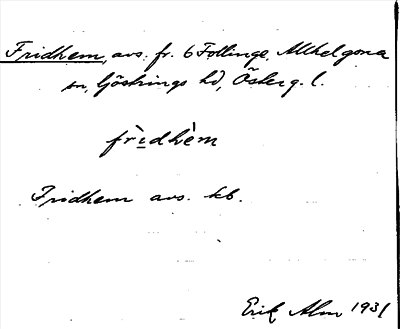 Fridhem, avs. fr. 6 Follinge, Allhelgona
sn, Göstrings hd, Österg. l.
frìdhèm
Fridhem avs. kb.
Erik Alm 1931